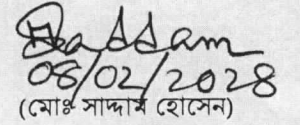 Saddam
08/02/2028
(মোঃ সাদ্দাম হোসেন)